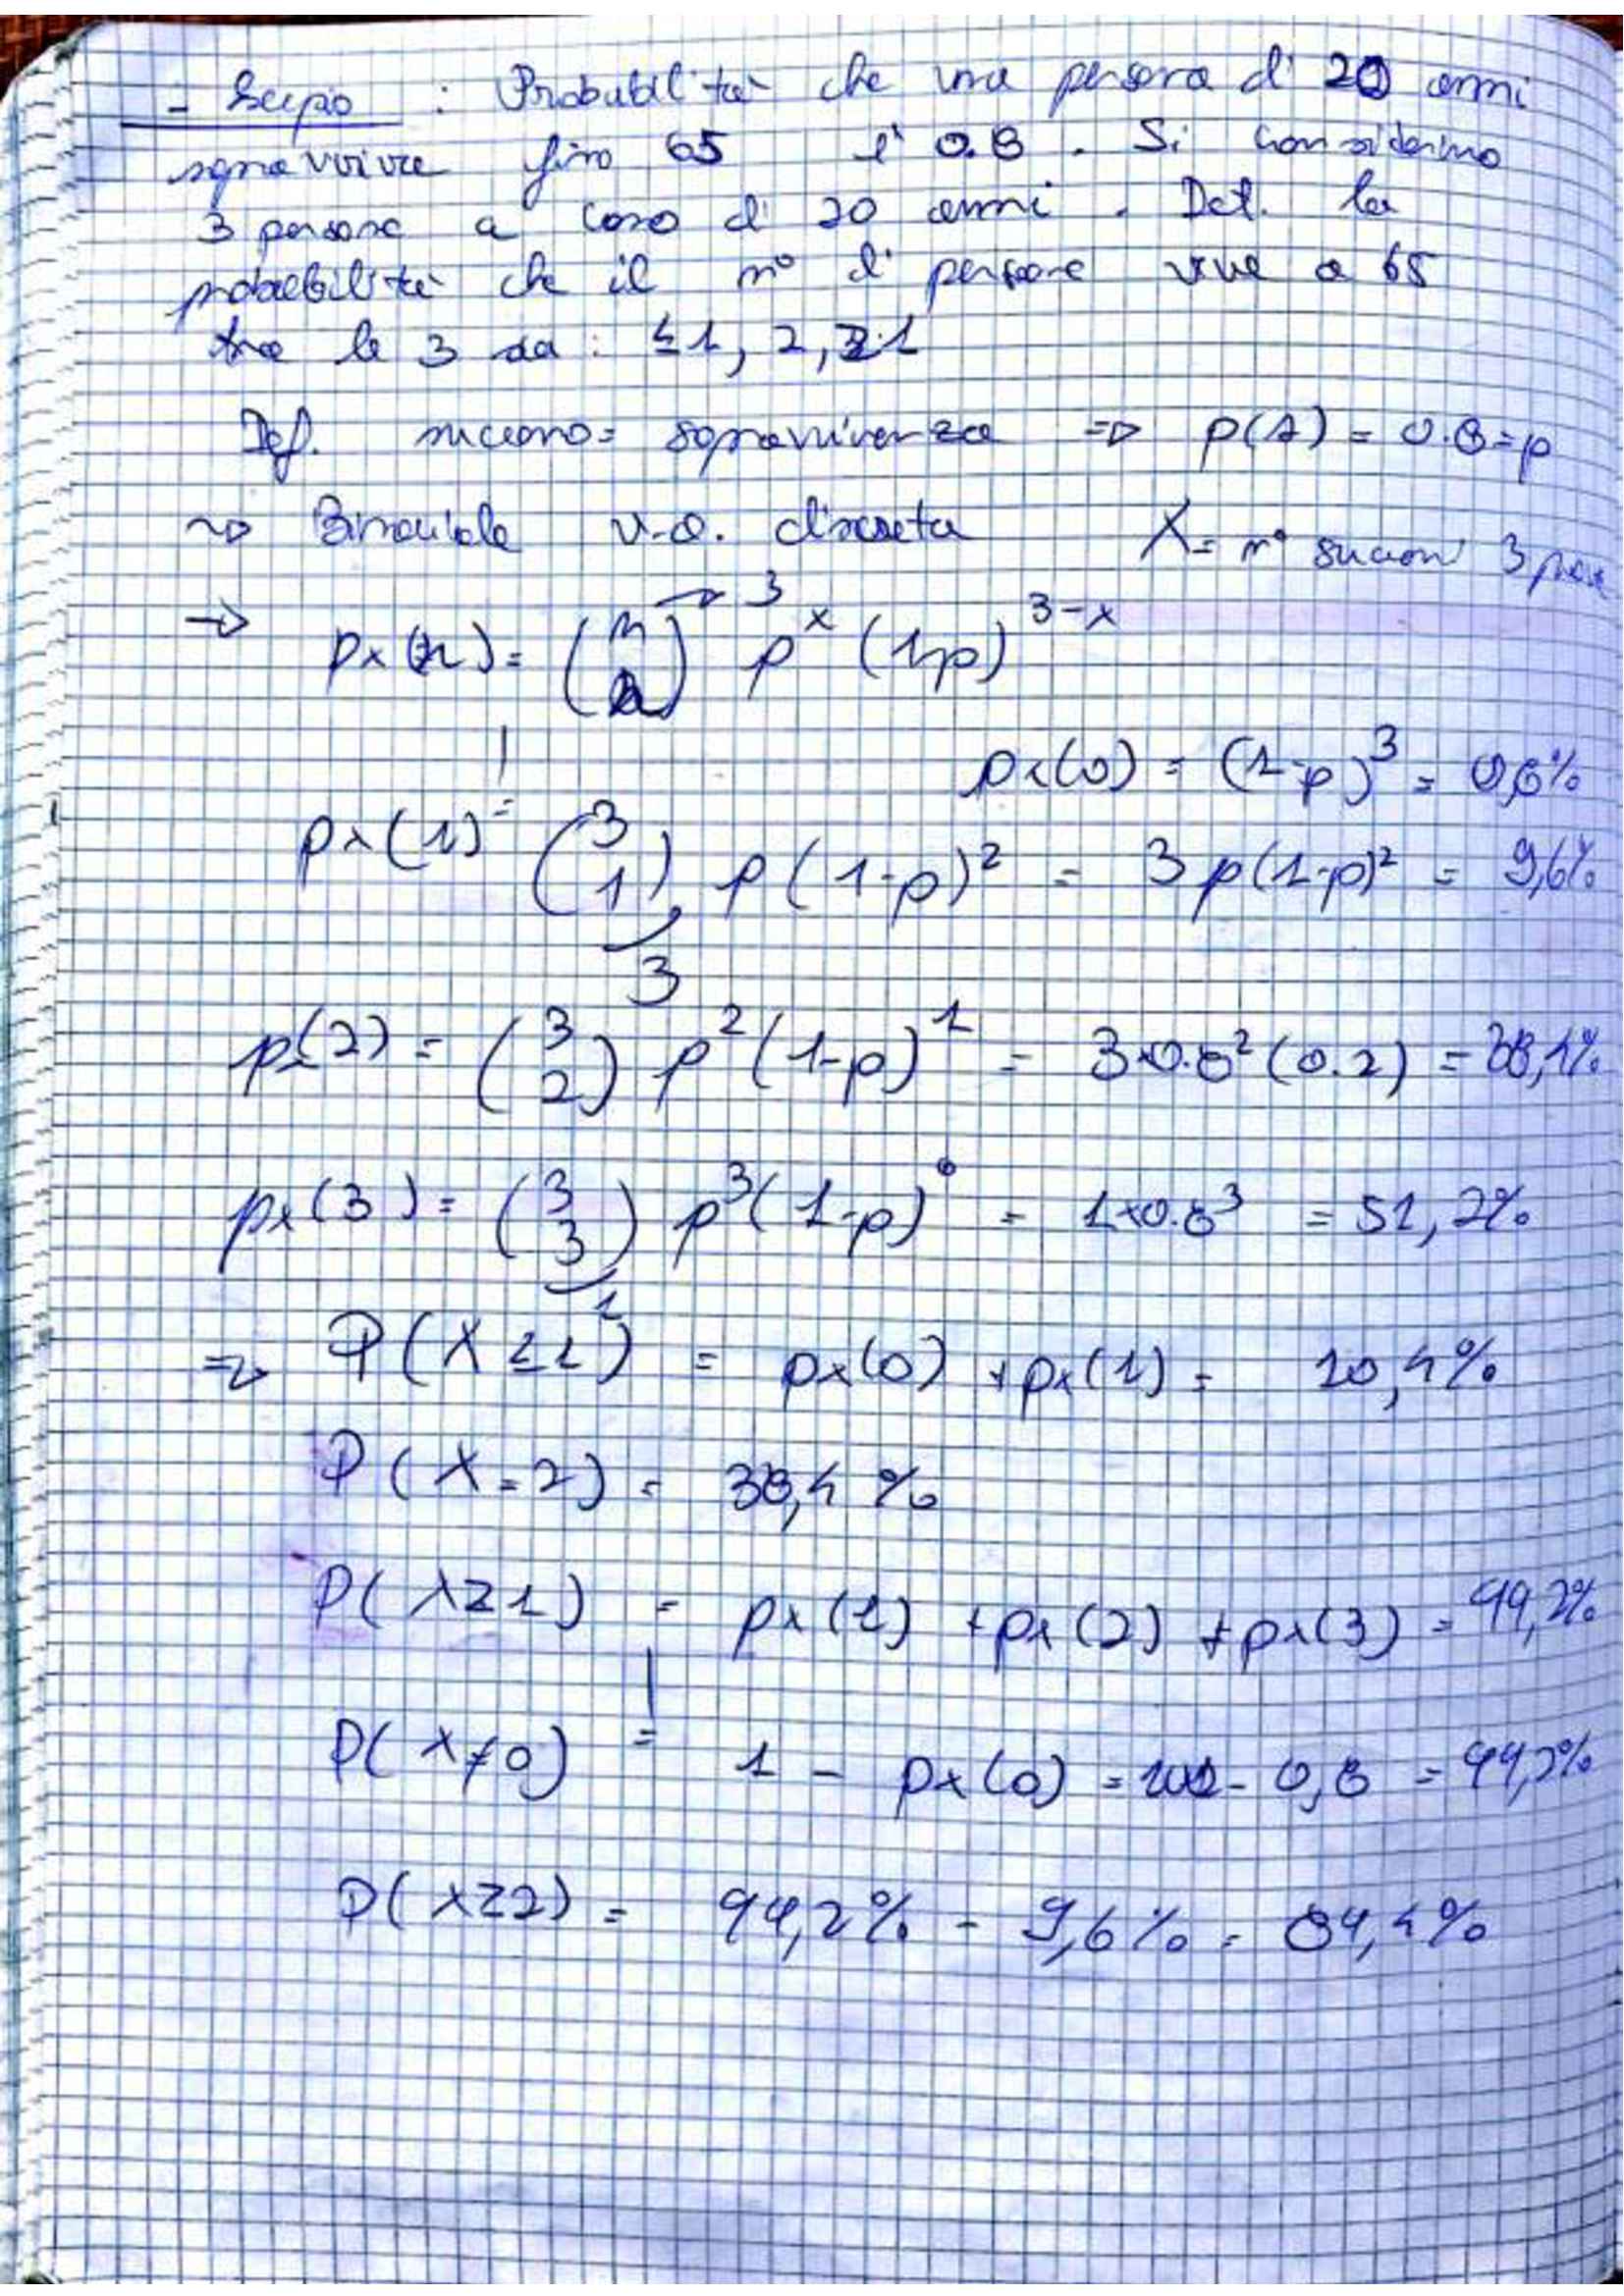 - Esempio : Probabilità che una persona di 20 anni
sopravvive fino 65 è 0.8 . Si considerino
3 persone a caso di 20 anni . Det. la
probabilità che il n° di persone vive a 65
tra le 3 sia : ≤1, 2, ≥1
Def. successo = sopravvivenza => p(A) = 0.8 = p
~> Binomiale v.a. discreta X = n° successi 3
→ px(x) = (n x) → 3 p^x (1-p)^3-x
px(0) = (1-p)^3 = 0,8%
px(1) = (3 1) p(1-p)^2 = 3p(1-p)^2 = 9,6%
3
px(2) = (3 2) p^2(1-p)^1 = 3×0.8^2(0.2) = 38,4%
px(3) = (3 3) p^3(1-p)^0 = 1×0.8^3 = 51,2%
1
=> P(X≤1) = px(0) + px(1) = 10,4%
P(X=2) = 38,4 %
P(X≥1) = px(1) + px(2) + px(3) = 99,2%
P(X≠0) = 1 - px(0) = 100 - 0,8 = 99,2%
P(X≥2) = 99,2% - 9,6% = 89,4%